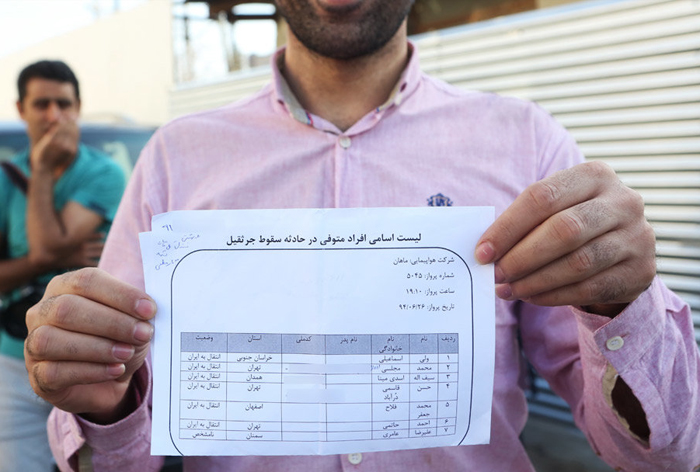 لیست اسامی افراد متوفی در حادثه سقوط جرثقیل
شرکت هواپیمایی: ماهان
شماره پرواز: ۵۰۴۵
ساعت پرواز: ۱۹:۱۰
تاریخ پرواز: ۹۴/۰۶/۲۶
ردیف نام نام خانوادگی نام پدر کدملی استان وضعیت
۱ ولی اسماعیلی خراسان جنوبی انتقال به ایران
۲ محمد مجلسی تهران انتقال به ایران
۳ سیف اله اسدی مینا همدان انتقال به ایران
۴ حسن قاسمی درآباد تهران انتقال به ایران
۵ محمد جعفر فلاح اصفهان انتقال به ایران
۶ احمد حاتمی تهران انتقال به ایران
۷ علیرضا عامری سمنان نامشخص